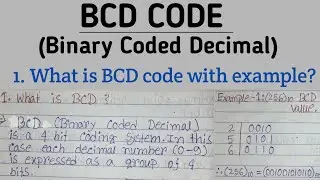 BCD CODE
(Binary Coded Decimal)
1. What is BCD code with example?
1. What is BCD?
⇒ BCD (Binary Coded Decimal)
is a 4 bit coding system. In this
case each decimal number (0-9)
is expressed as a group of 4
bits.
Example-1:(256)10 BCD
value.
2 | 0010
5 | 0101
6 | 0110
∴(256)10 = (001001010110)